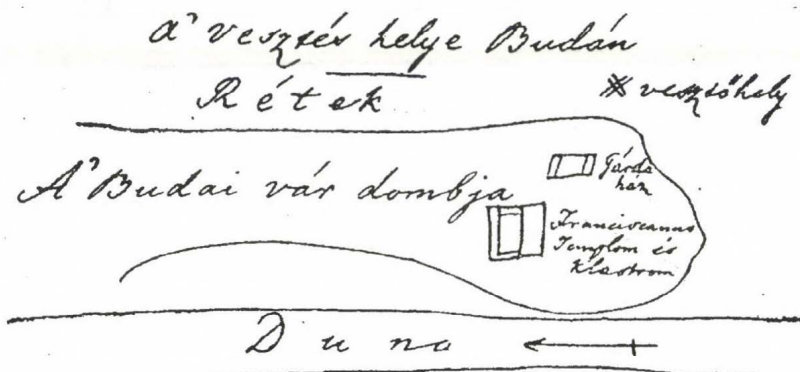 A' vesztés helye Budán
Rétek
vesztőhely
A' Budai vár dombja
Gárda
ház
Franciscanus
Templom és
Klastrom
Duna